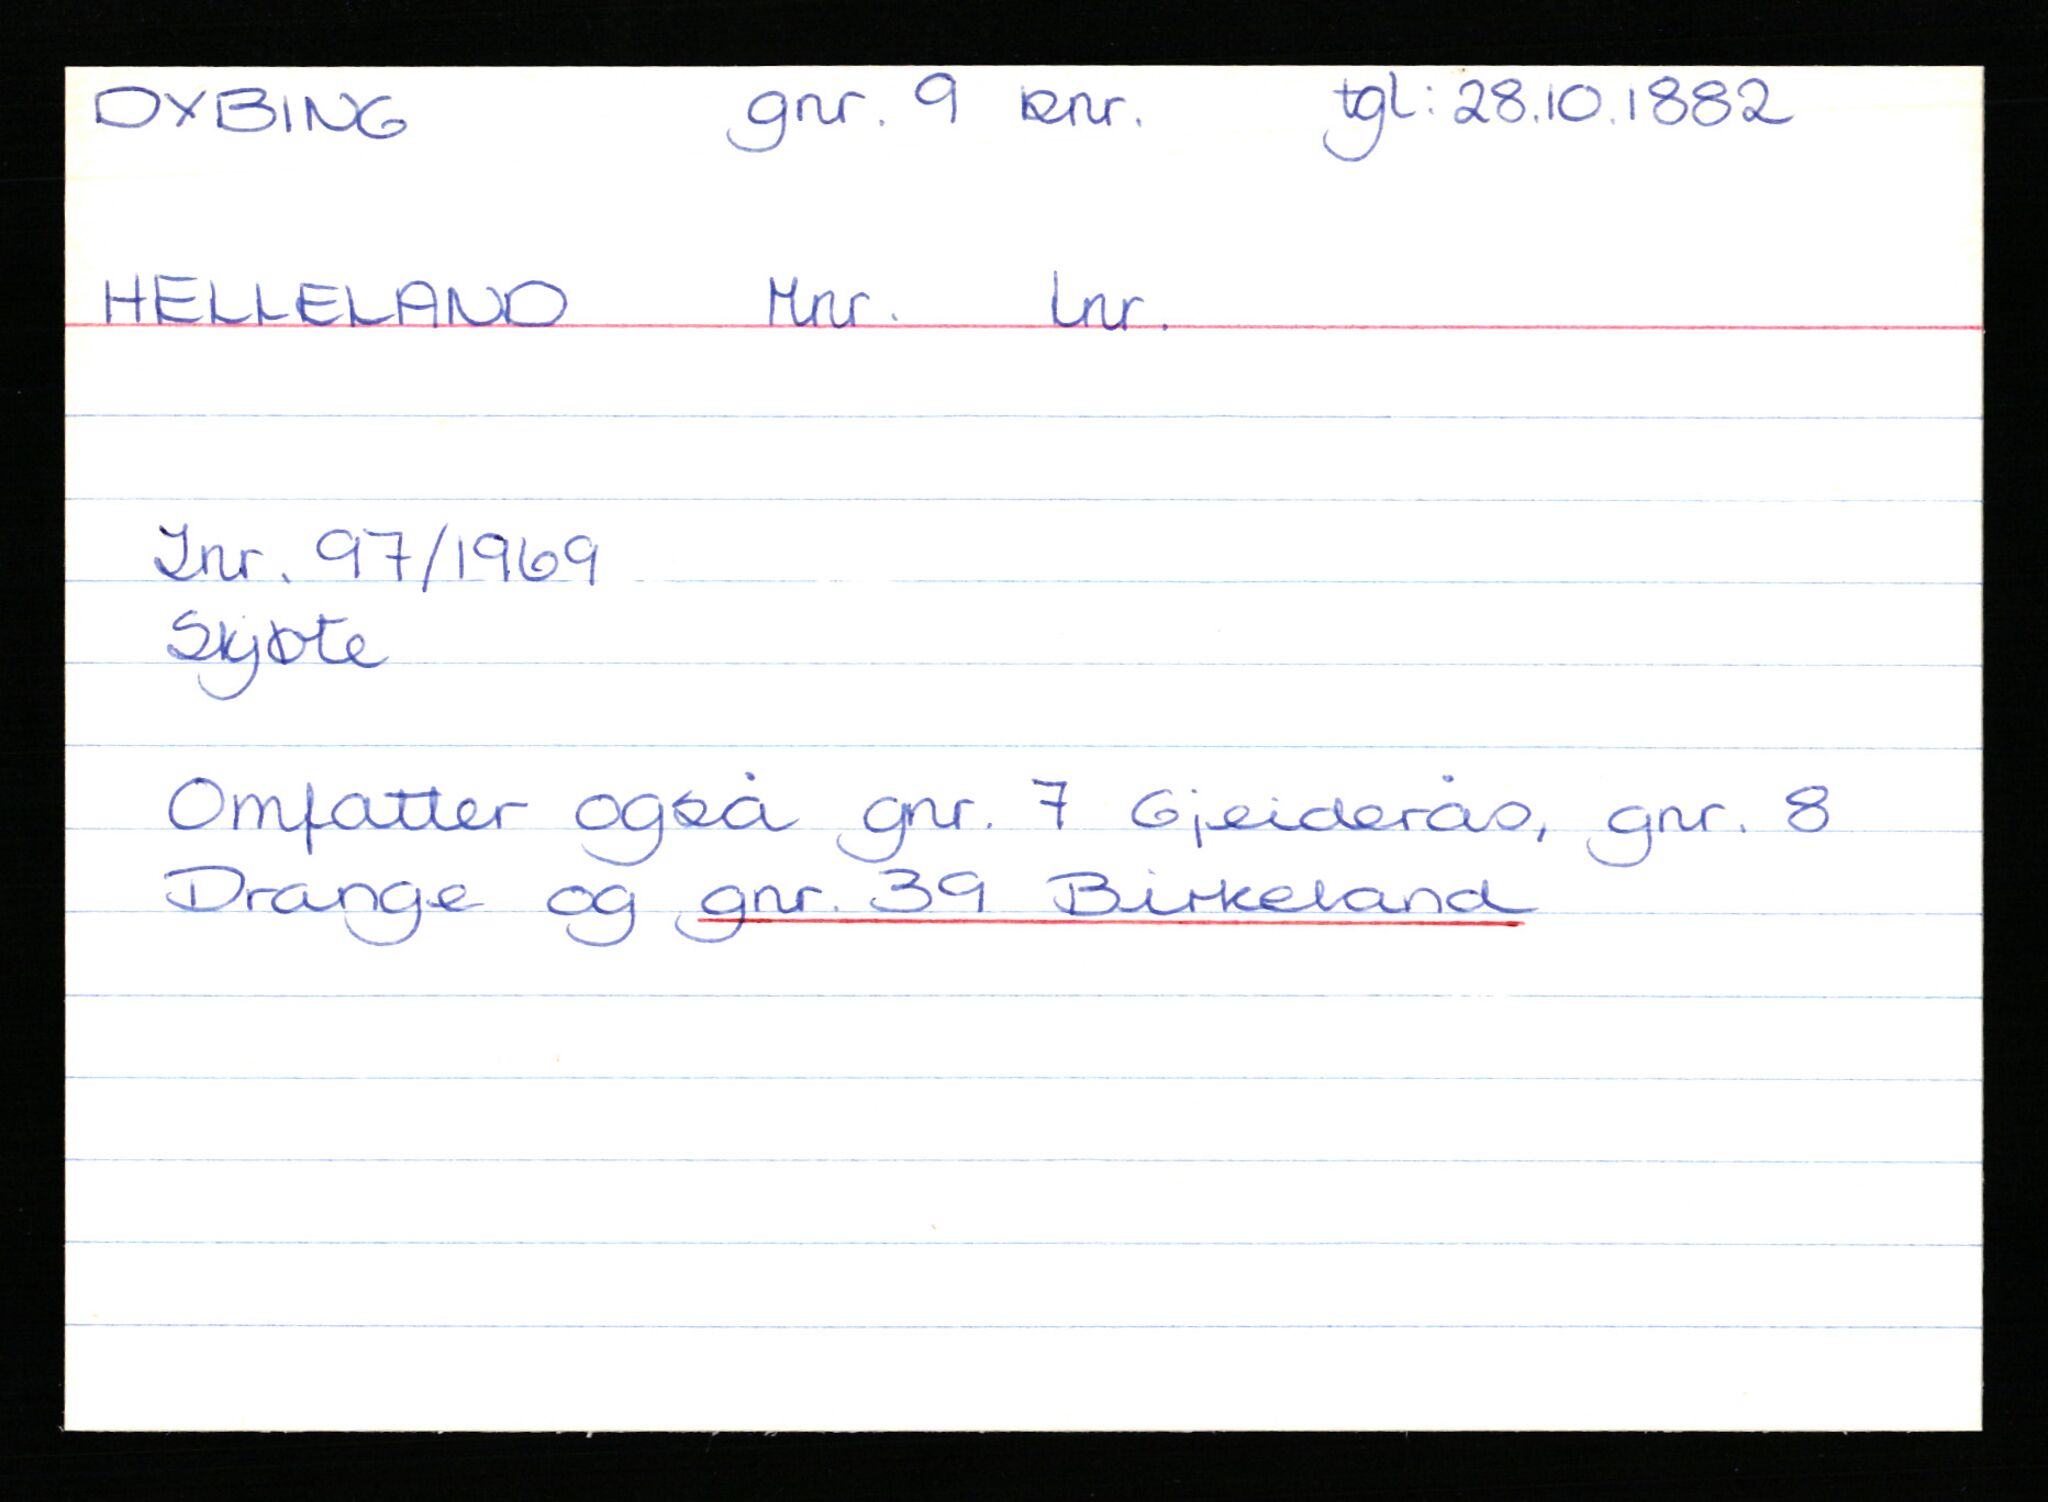 DYBING gnr. 9 bnr. tgl: 28.10.1882
HELLELAND Mnr. Lnr.
Jnr. 97/1969
Skjøte
Omfatter også gnr. 7 Gjeiderås, gnr. 8
Drange og gnr. 39 Birkeland